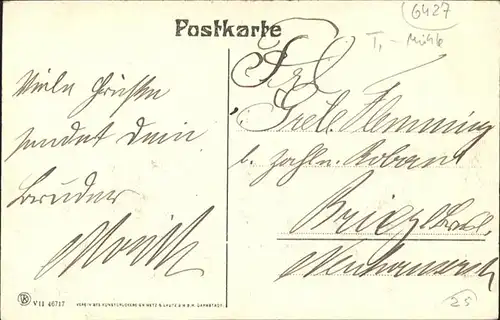 Postkarte
6427
T, - Mühle
Viele Grüsse
sendet Dein
Bruder
Moritz
Frl
Grete Flemming
b. Zahlm.
Brieg
V 11 46717
VEREIN DER KUNSTDRUCKEREIEN METZ & LAUTZ G.M.B.H. DARMSTADT.
25